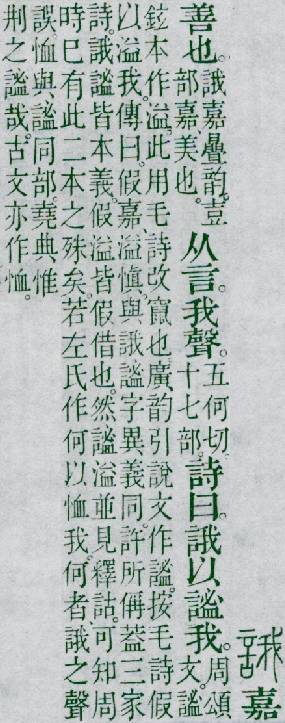 誐嘉
善也。誐嘉疊韵。壴部。嘉、美也。从言。我聲。五何切。十七部。詩曰。誐以謐我。周頌文。謐
鉉本作溢。此用毛詩改竄也。廣韵引說文作謐。按毛詩假
以溢我。傳曰。假嘉。溢愼。與誐謐字異義同。許所偁葢三家
詩。誐謐皆本義。假溢皆假借也。然謐溢並見釋詁。可知周
時巳有此二本之殊矣。若左氏作何以恤我。何者、誐之聲
誤。恤與謐同部。堯典惟
荆之謐哉。古文亦作恤。